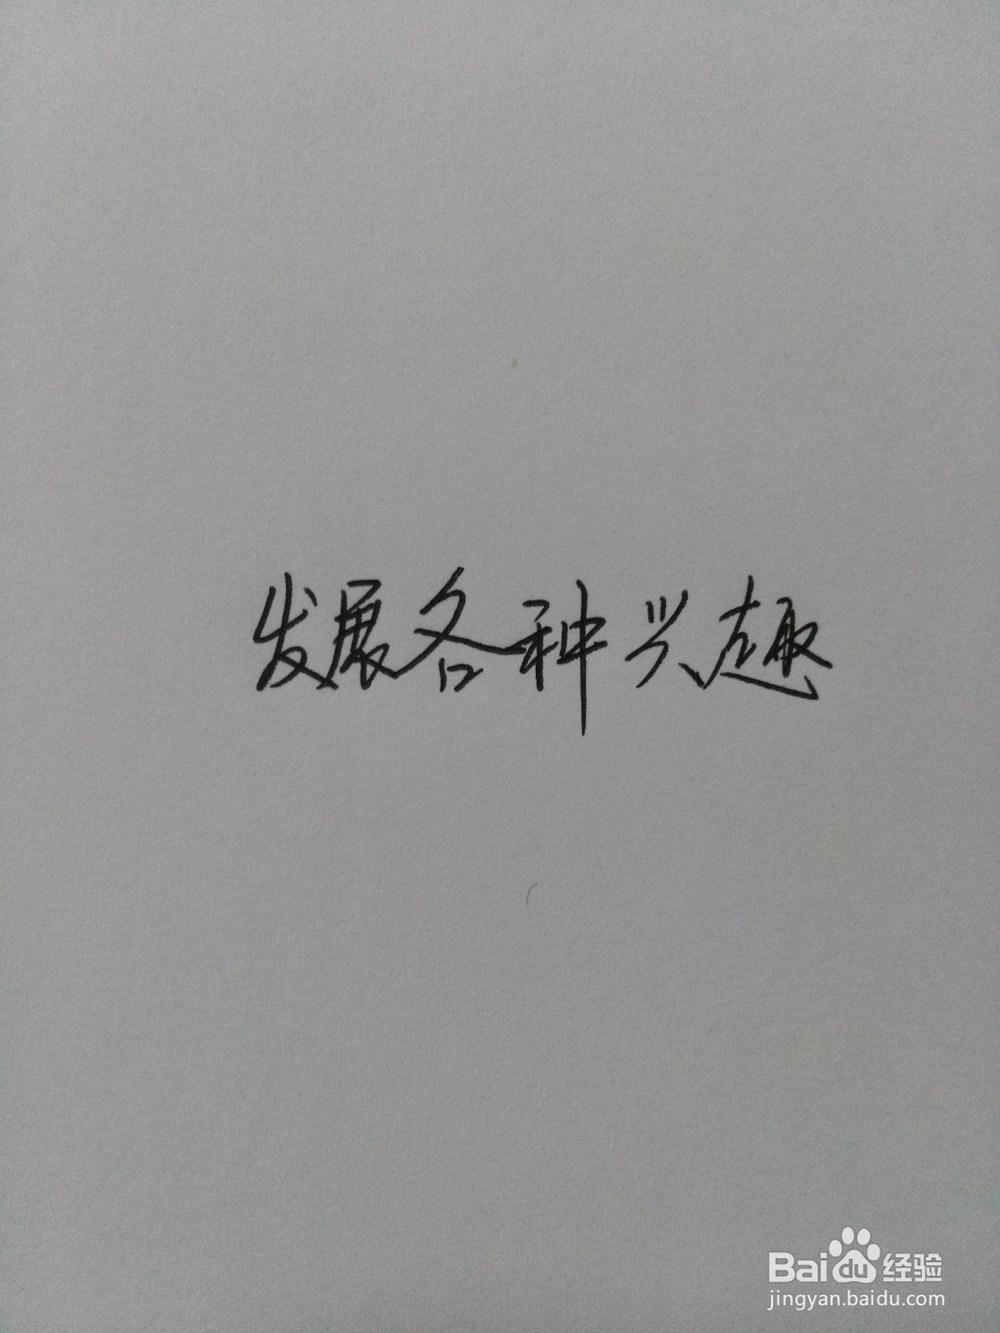 发展各种兴趣
Baidu经验
jingyan.baidu.com